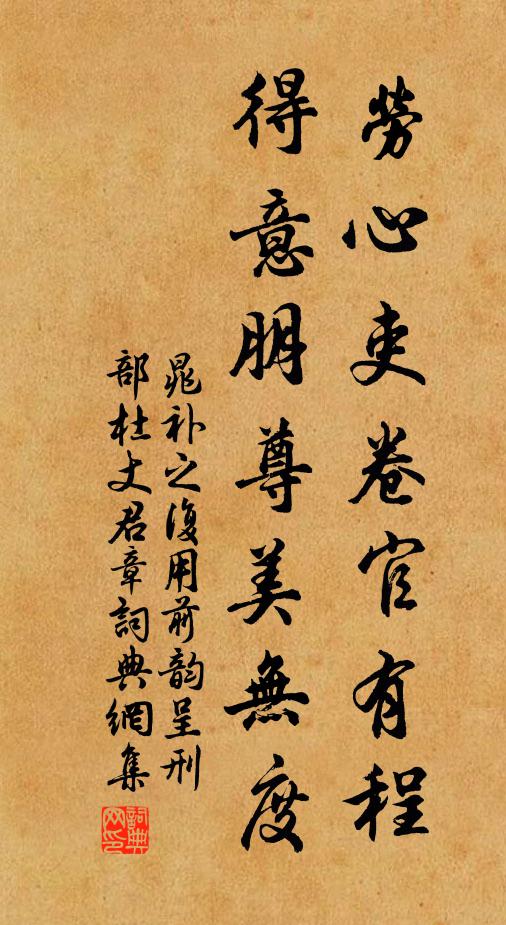 勞心吏卷官有程
得意朋尊美無度
晁补之復用前韵呈刑
部杜丈君章詞典網集
詞典网印